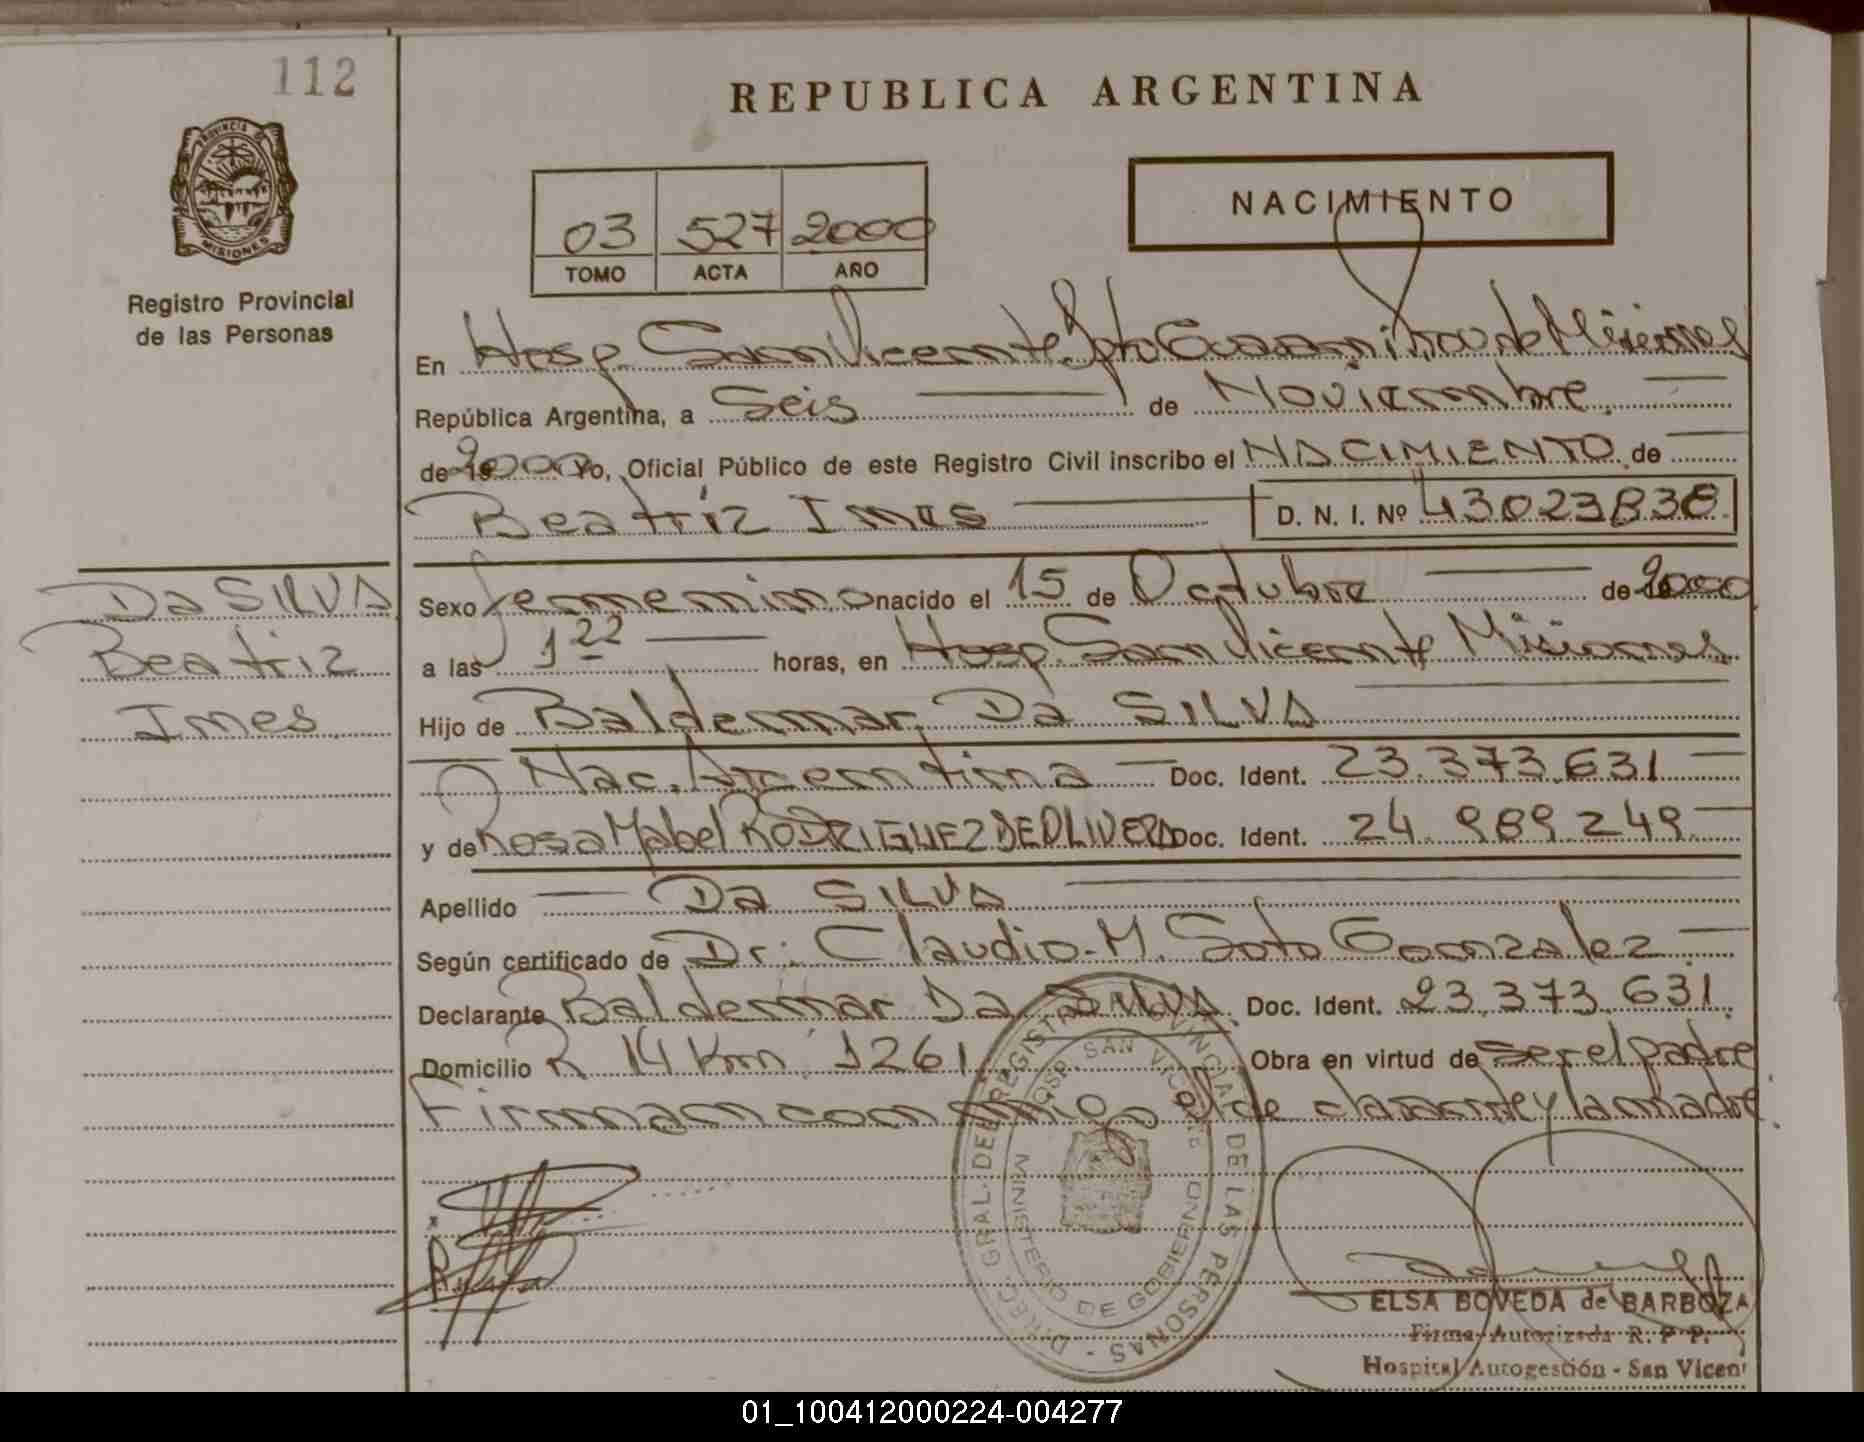 112
REPUBLICA ARGENTINA
PROVINCIA DE
MISIONES
Registro Provincial
de las Personas
03 527 2000
TOMO ACTA AÑO
NACIMIENTO
En Hosp. San Vicente, Dpto Guaraní Prov de Misiones
República Argentina, a Seis de Noviembre
de 2000 Yo, Oficial Público de este Registro Civil inscribo el NACIMIENTO de
Beatriz Ines D. N. I. Nº 43023838
Da SILVA
Beatriz
Ines
Sexo femenino nacido el 15 de Octubre de 2000
a las 1 22 horas, en Hosp. San Vicente Misiones
Hijo de Baldemar Da SILVA
Nac. Argentina Doc. Ident. 23.373.631
y de Rosa Mabel RODRIGUEZ DE OLIVERA Doc. Ident. 24.989249
Apellido Da SILVA
Según certificado de Dr: Claudio M. Soto Gonzalez
Declarante Baldemar Da SILVA Doc. Ident. 23.373.631
Domicilio R 14 Km 1261 Obra en virtud de ser el padre
Firman conmigo el declarante y la madre
DIREC. GRAL. DEL REGISTRO PROVINCIAL DE LAS PERSONAS -
HOSP. SAN VICENTE
MINISTERIO DE GOBIERNO
ELSA BOVEDA de BARBOZA
Firma Autorizada R. P. P.
Hospital Autogestión - San Vicent
01_100412000224-004277